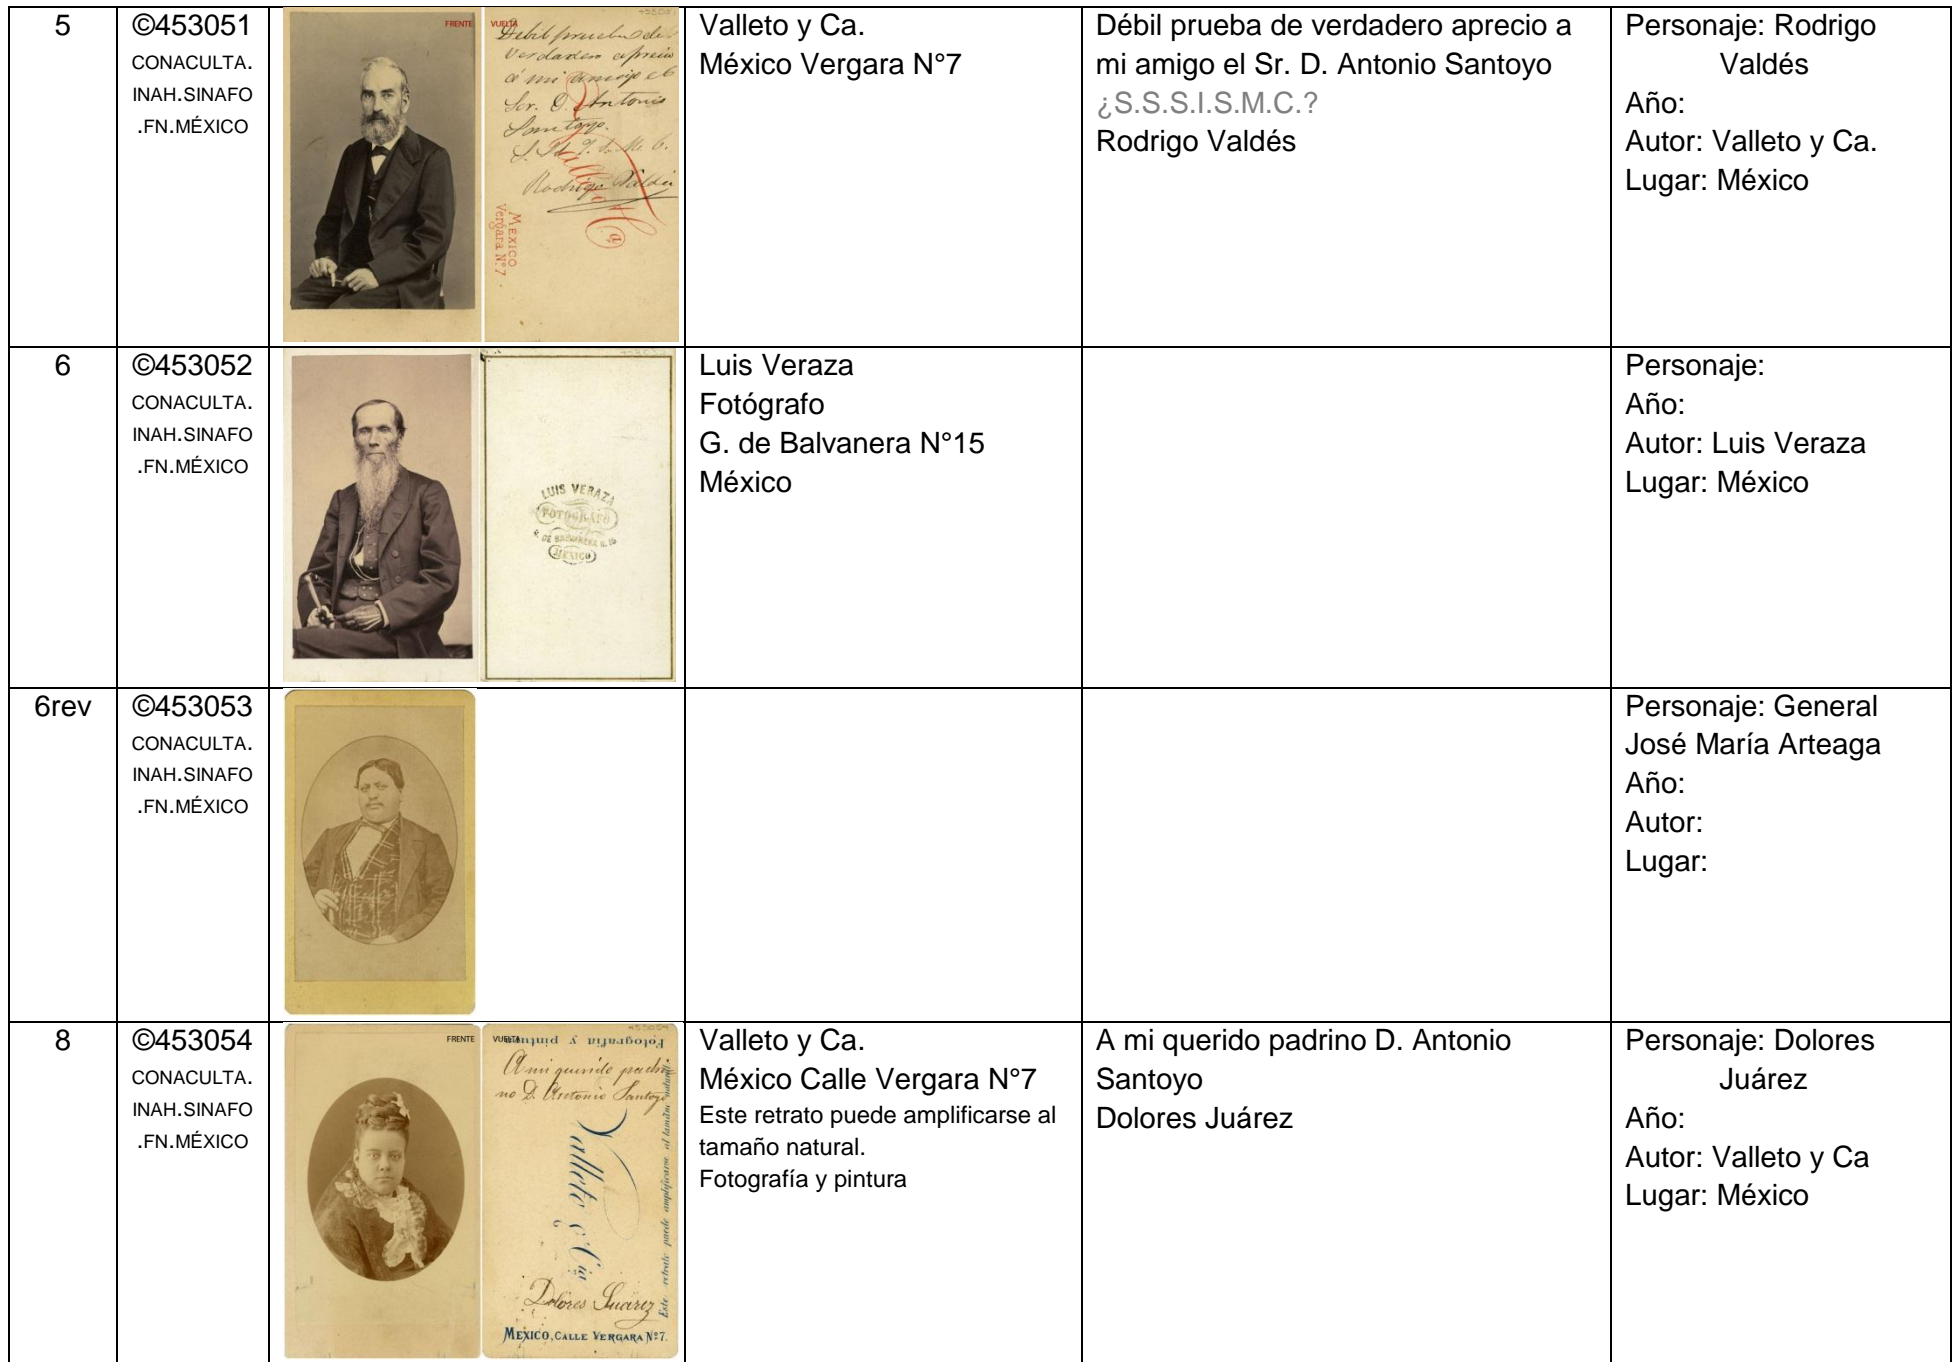 5
©453051
CONACULTA.
INAH.SINAFO
.FN.MÉXICO
FRENTE
VUELTA
453051
Debil prueba de
verdadero aprecio
á mi amigo el
Sor. D. Antonio
Santoyo.
Rodrigo Valdés
Valleto y Cª
MEXICO
Vergara Nº 7.
Valleto y Ca.
México Vergara N°7
Débil prueba de verdadero aprecio a
mi amigo el Sr. D. Antonio Santoyo
¿S.S.S.I.S.M.C.?
Rodrigo Valdés
Personaje: Rodrigo
Valdés
Año:
Autor: Valleto y Ca.
Lugar: México
6
©453052
CONACULTA.
INAH.SINAFO
.FN.MÉXICO
LUIS VERAZA
FOTOGRAFO
G. DE BALVANERA N. 15
MEXICO
Luis Veraza
Fotógrafo
G. de Balvanera N°15
México
Personaje:
Año:
Autor: Luis Veraza
Lugar: México
6rev
©453053
CONACULTA.
INAH.SINAFO
.FN.MÉXICO
Personaje: General
José María Arteaga
Año:
Autor:
Lugar:
8
©453054
CONACULTA.
INAH.SINAFO
.FN.MÉXICO
FRENTE
VUELTA
453054
Fotografia y pintura
A mi querido padri
no D. Antonio Santoyo
Valleto & Cia
Este retrato puede amplificarse al tamaño natural.
Dolores Juarez
MEXICO, CALLE VERGARA Nº 7.
Valleto y Ca.
México Calle Vergara N°7
Este retrato puede amplificarse al
tamaño natural.
Fotografía y pintura
A mi querido padrino D. Antonio
Santoyo
Dolores Juárez
Personaje: Dolores
Juárez
Año:
Autor: Valleto y Ca
Lugar: México